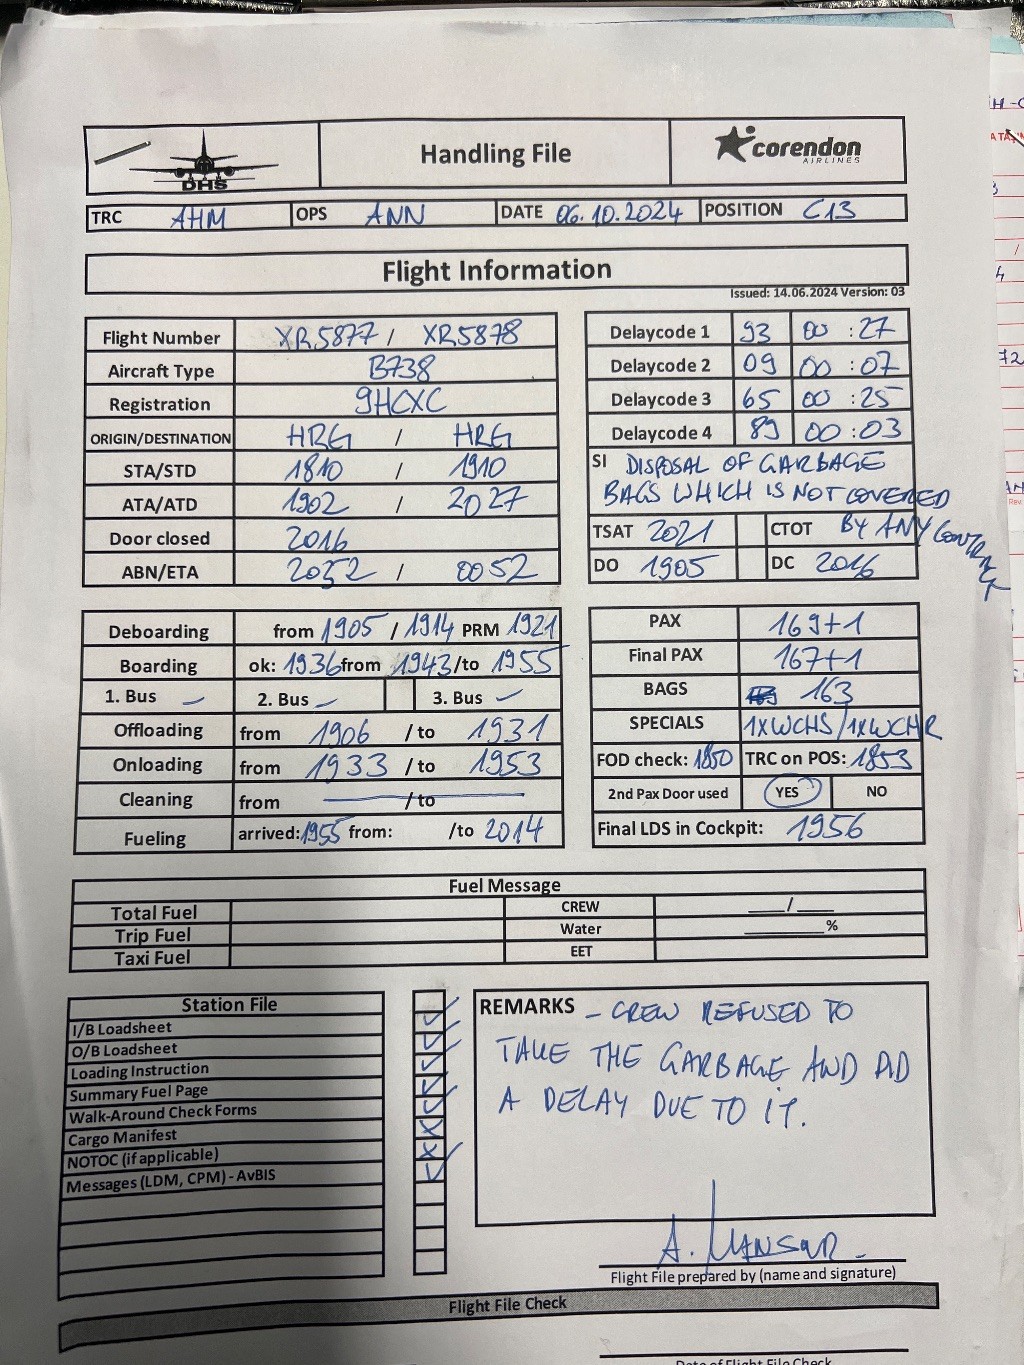 DHS
Handling File
corendon
AIRLINES
TRC AHM OPS ANN DATE 06.10.2024 POSITION C13
Flight Information
Issued: 14.06.2024 Version: 03
Flight Number XR5877 / XR5878
Aircraft Type B738
Registration 9HCXC
ORIGIN/DESTINATION HRG / HRG
STA/STD 1810 / 1910
ATA/ATD 1902 / 2027
Door closed 2016
ABN/ETA 2032 / 0052
Delaycode 1 93 00 : 27
Delaycode 2 09 00 : 07
Delaycode 3 65 00 : 25
Delaycode 4 89 00 : 03
SI DISPOSAL OF GARBAGE
BAGS WHICH IS NOT COVERED
BY ANY
TSAT 2021 CTOT
DO 1905 DC 2016
Deboarding from 1905 / 1914 PRM 1921
Boarding ok: 1936 from 1943 /to 1955
1. Bus – 2. Bus – 3. Bus –
Offloading from 1906 / to 1931
Onloading from 1933 / to 1953
Cleaning from / to
Fueling arrived: 1955 from: /to 2014
PAX 169+1
Final PAX 167+1
BAGS 163
SPECIALS 1XWCHS/1XWCHR
FOD check: 1850 TRC on POS: 1853
2nd Pax Door used YES NO
Final LDS in Cockpit: 1956
Fuel Message
Total Fuel CREW ____/____
Trip Fuel Water ________%
Taxi Fuel EET
Station File
I/B Loadsheet
O/B Loadsheet
Loading Instruction
Summary Fuel Page
Walk-Around Check Forms
Cargo Manifest
NOTOC (if applicable)
Messages (LDM, CPM) - AvBIS
REMARKS – CREW REFUSED TO
TAKE THE GARBAGE AND DID
A DELAY DUE TO IT.
A. MANSOUR
Flight File prepared by (name and signature)
Flight File Check
Date of Flight File Check